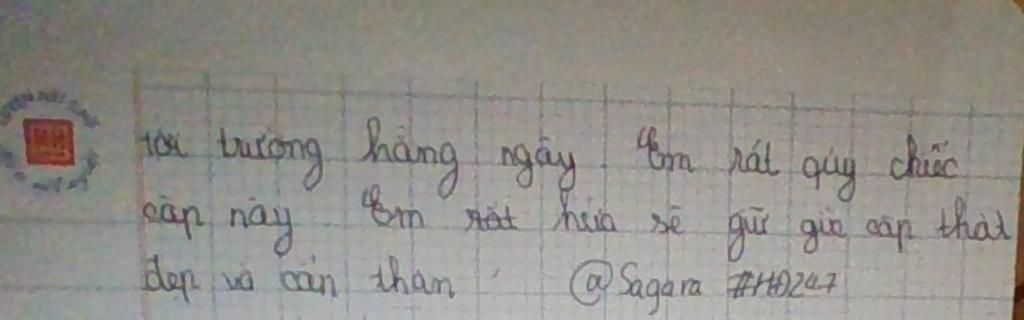 tới trường hàng ngày. Em rất quý chiếc
cặp này. Em rất hứa sẽ giữ gìn cặp thật
đẹp và cẩn thận. @Sagara #HD247